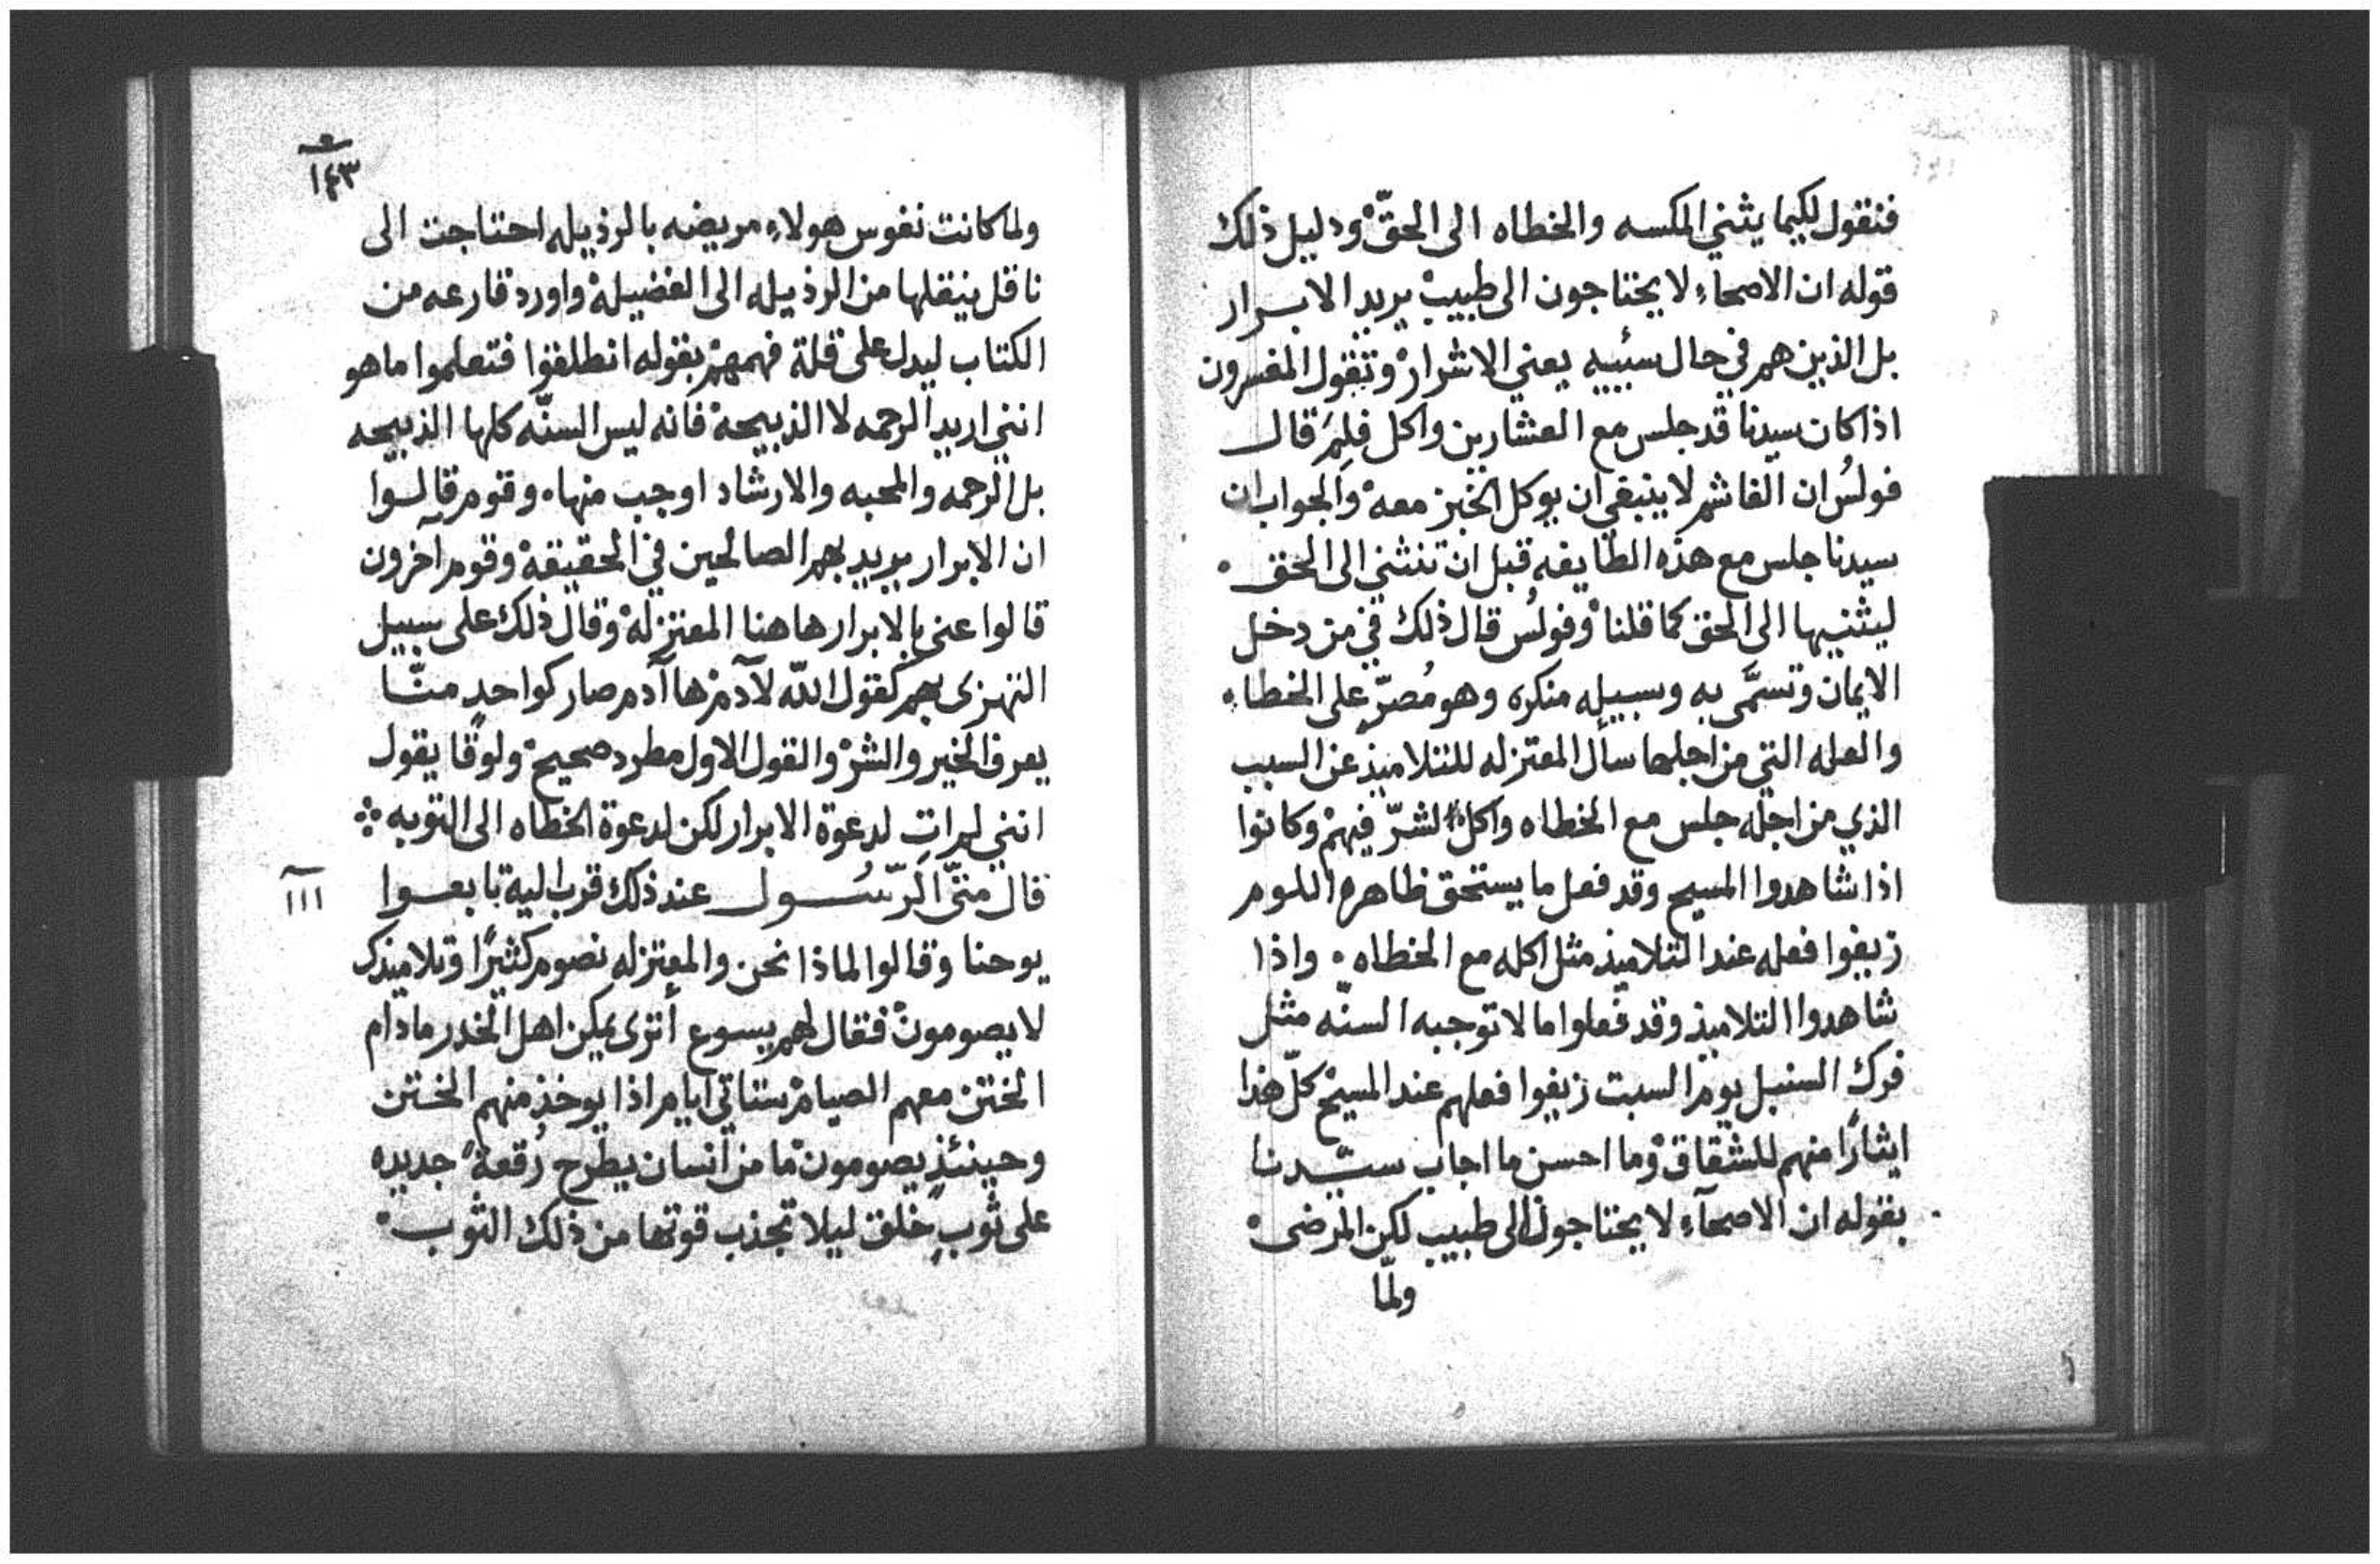 فنقول لكيما يثني المكسه والخطاه الى الحقّ ودليل ذلك
قوله ان الاصحاء لا يحتاجون الى طبيب يريد الابرار
بل الذين هم في حال سئيه يعني الاشرار وتقول المفسرون
اذا كان سيدنا قد جلس مع العشارين واكل فلِمَ قال
فولسُ ان الغاشم لا ينبغي ان يوكل الخبز معه والجواب ان
سيدنا جلس مع هذه الطايفه قبل ان تنثني الى الحق
ليثنيها الى الحق كما قلنا وفولسُ قال ذلك في من دخل
الايمان وتسمَّى به وسبيله منكره وهو مُصرّ على الخطاء
والعله التي من اجلها سأل المعتزله للتلاميذ عن السبب
الذي من اجله جلس مع الخطاه واكل لشرّ فيهم وكانوا
اذا شاهدوا المسيح وقد فعل ما يستحق ظاهره اللوم
زيفوا فعله عند التلاميذ مثل اكله مع الخطاه واذا
شاهدوا التلاميذ وقد فعلوا ما لا توجبه السنّه مثل
فرك السنبل يوم السبت زيفوا فعلهم عند المسيح كلّ هذا
ايثارًا منهم للشقاق وما احسن ما اجاب سيّدنا
بقوله ان الاصحآء لا يحتاجون الى طبيب لكن المرضى
ولمّا
١٤٣
ولما كانت نفوس هولاء مريضه بالرذيله احتاجت الى
ناقل ينقلها من الرذيله الى الفضيلة واورد قارعه من
الكتاب ليدل على قلة فهمهم بقوله انطلقوا فتعلموا ما هو
انني اريد الرحمه لا الذبيحة فانه ليس السنّه كلها الذبيحه
بل الرحمه والمحبه والارشاد اوجب منها وقوم قالوا
ان الابرار يريد بهم الصالحين في الحقيقة وقوم آخرون
قالوا عنى بالابرار هاهنا المعتزلة وقال ذلك على سبيل
التهزى بهم كقول اللّه لآدم ها آدم صار كواحدٍ منّا
يعرف الخير والشر والقول الاول مطرد صحيح ولوقا يقول
انني لم ات لدعوة الابرار لكن لدعوة الخطاه الى التوبه
قال متّى الرّسُول عند ذلك قرب اليه تابعوا
١١١
يوحنا وقالوا لماذا نحن والمعتزله نصوم كثيرًا وتلاميذك
لا يصومون فقال لهم يسوع أترى يمكن اهل الخدر ما دام
الختن معهم الصيام ستاتي ايام اذا يوخذ منهم الختن
وحينئذٍ يصومون ما من انسان يطرح رُقعةً جديده
على ثوبٍ خلق ليلا تجذب قوتها من ذلك الثوب